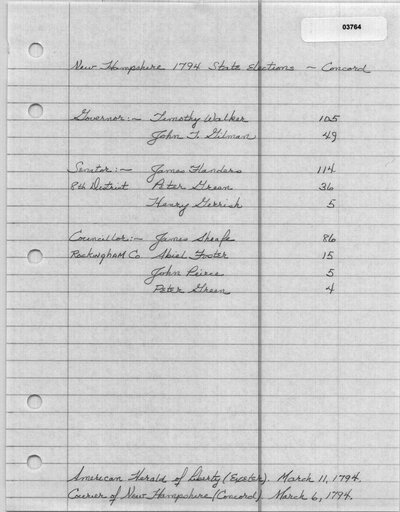 03764
New Hampshire 1794 State Elections - Concord
Governor:- Timothy Walker 105
John T. Gilman 49
Senator:- James Flanders 114
8th District Peter Green 36
Henry Gerrish 5
Councillor:- James Sheafe 86
Rockingham Co Abiel Foster 15
John Peirce 5
Peter Green 4
American Herald of Liberty (Exeter). March 11, 1794.
Courier of New Hampshire (Concord). March 6, 1794.